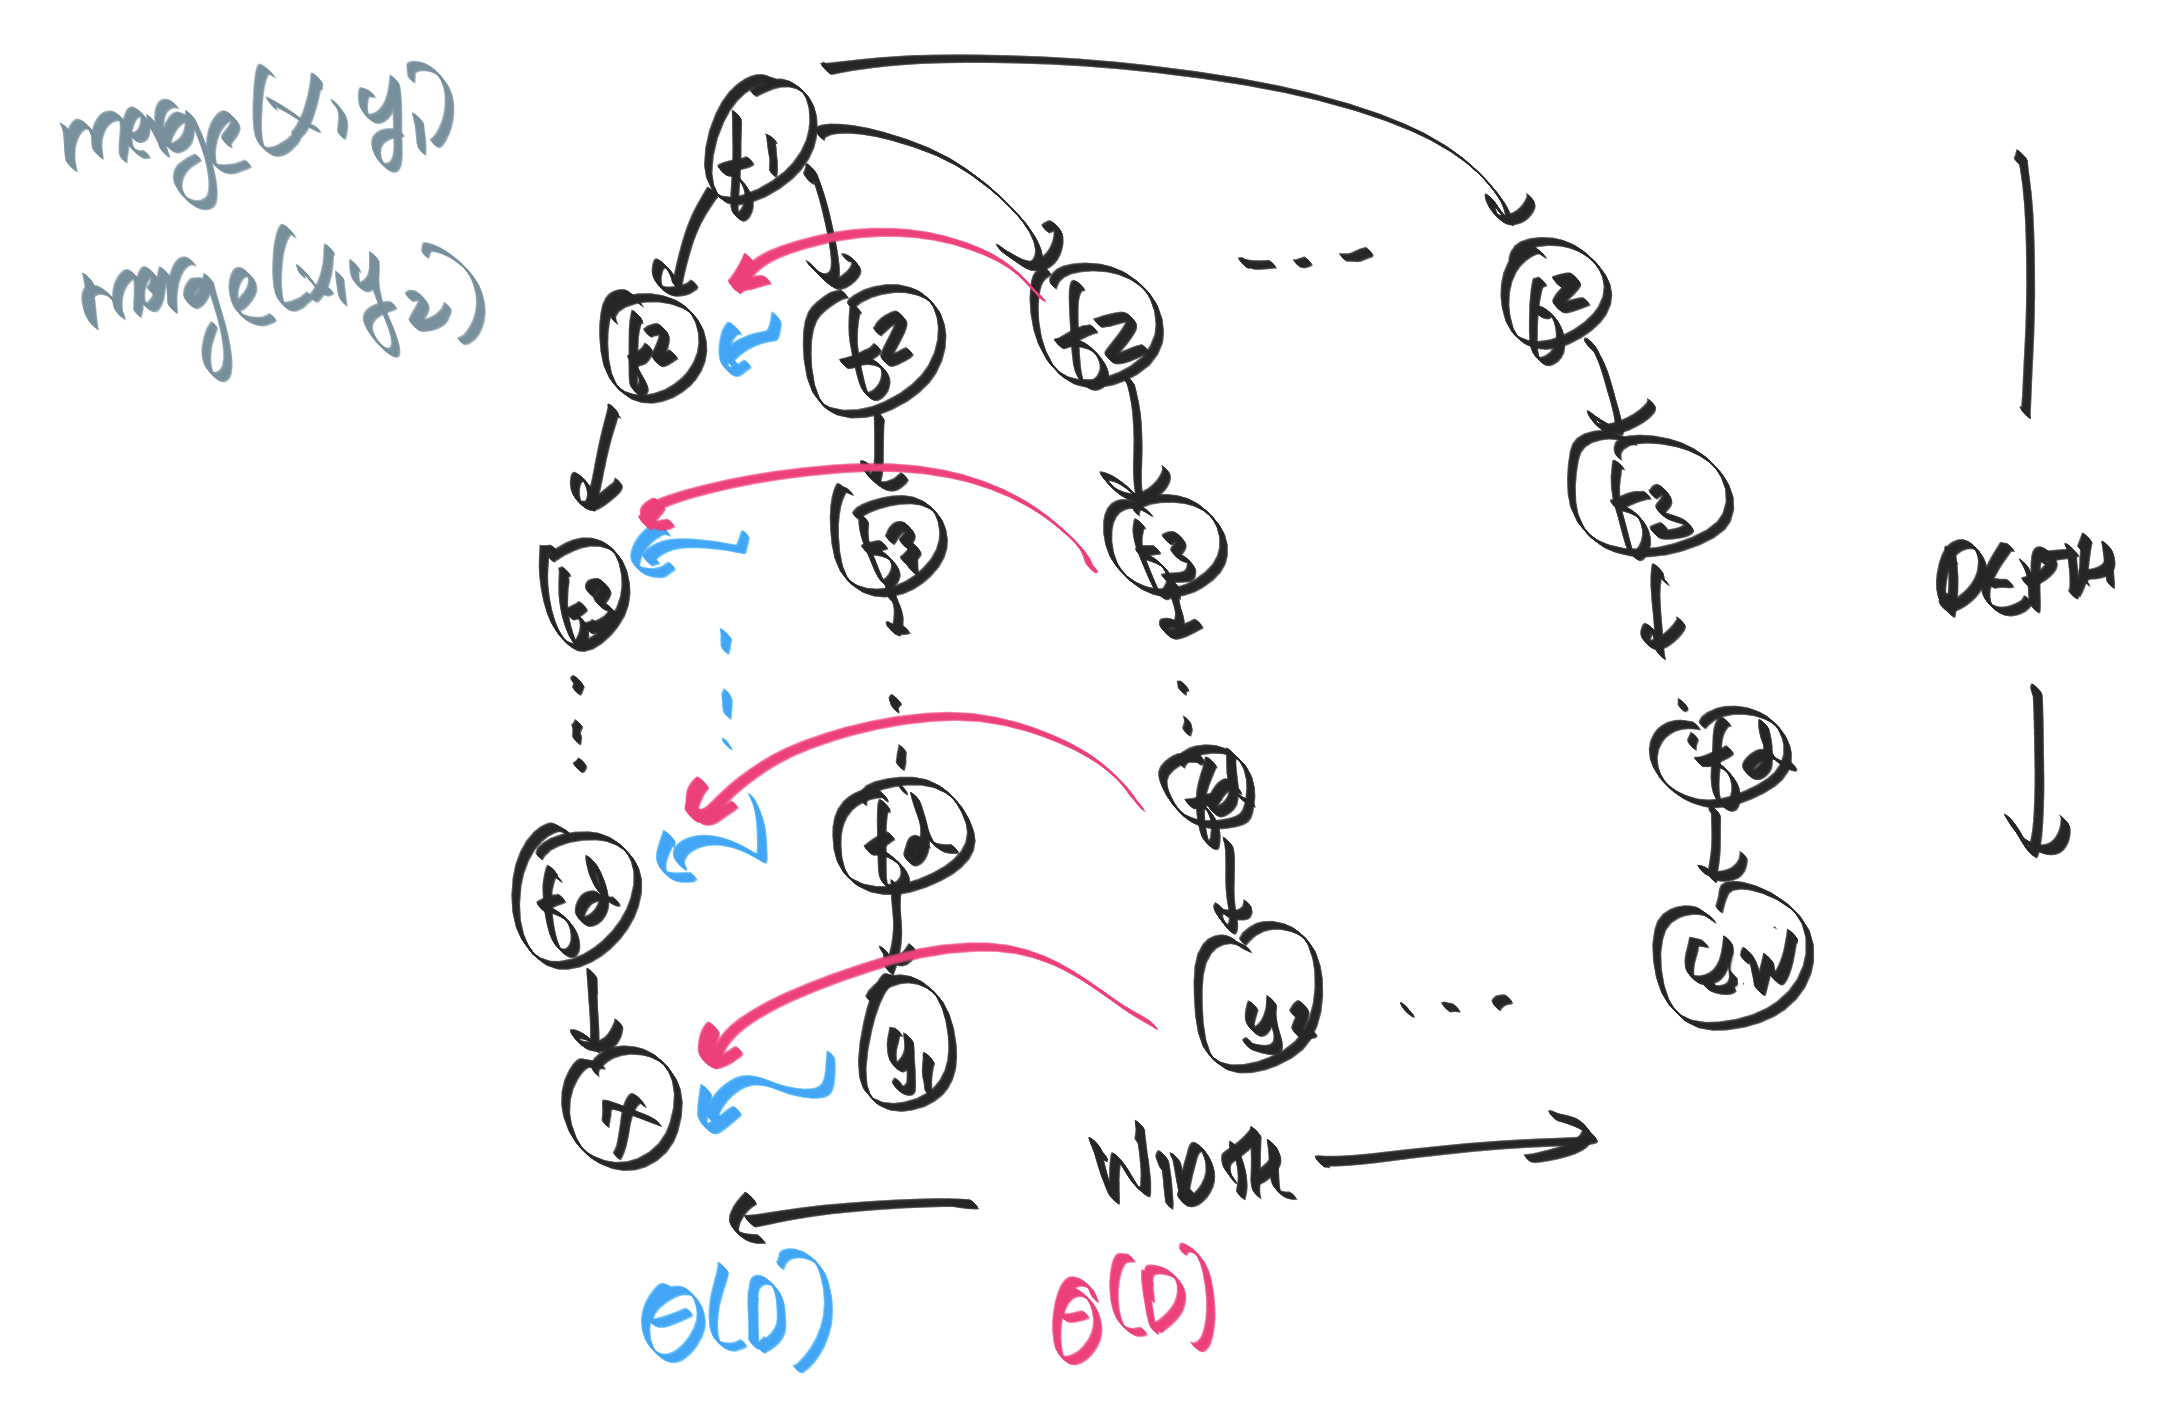 merge(x, y1)
merge(x, y2)
f1
f2 f2 f2 f2
f3 f3 f3 f3
DEPTH
fd fd fd fd
x y1 y2 yw
WIDTH
Θ(D) Θ(D)